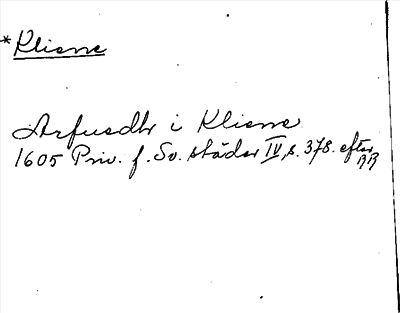 *Klisne
Arfuedh i Klisne
1605 Priv. f. Sv. städer IV, s. 378. efter